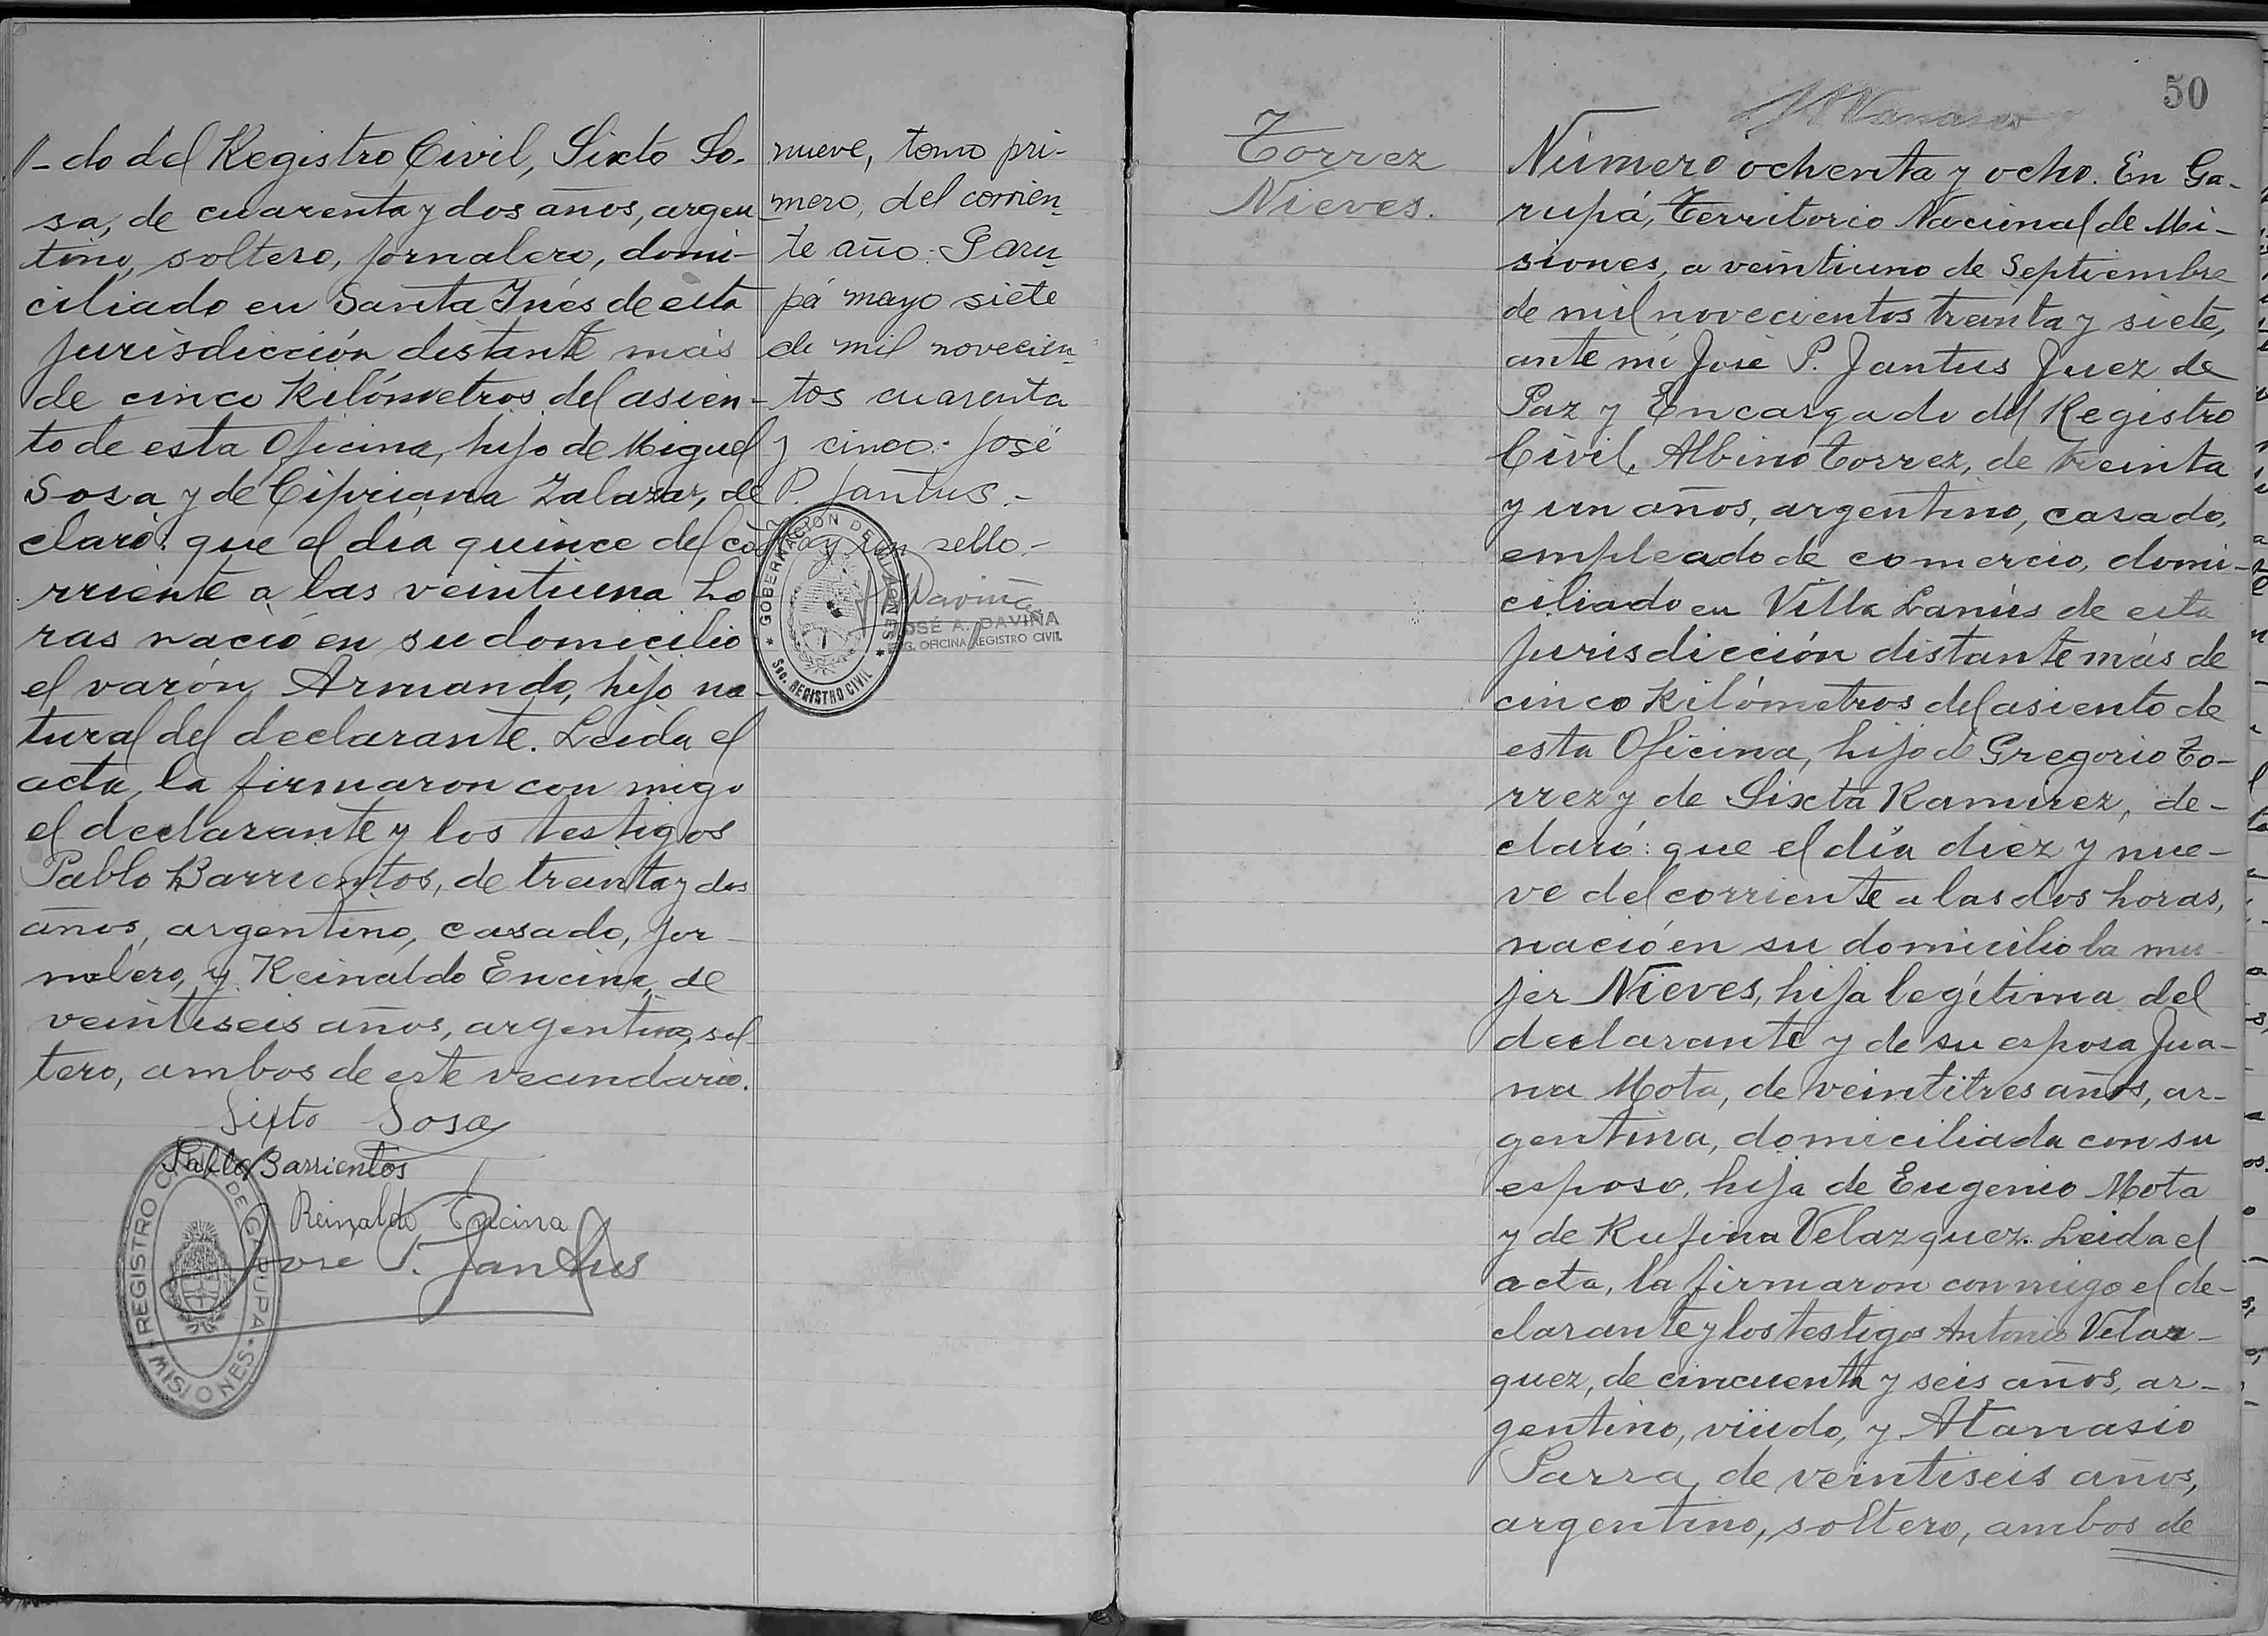 //- do del Registro Civil, Sixto So-
sa, de cuarenta y dos años, argen
tino, soltero, jornalero, domi-
ciliado en Santa Inés de esta
jurisdicción distante más
de cinco kilómetros del asien-
to de esta Oficina, hijo de Miguel
Sosa y de Cipriana Zalazar, de
claró: que el día quince del co
rriente a las veintiuna ho
ras nació en su domicilio
el varón Armando, hijo na-
tural del declarante. Leida el
acta, la firmaron con migo
el declarante y los testigos
Pablo Barrientos, de treinta y dos
años, argentino, casado, jor-
nalero, y Reinaldo Encina, de
veintiseis años, argentino, sol
tero, ambos de este vecindario.
Sixto Sosa
Pablo Barrientos
Reinaldo Encina
Jose P. Jantus
REGISTRO CIVIL DE GARUPA
MISIONES
nueve, tomo pri-
mero, del corrien
te año. Garu
pá mayo siete
de mil novecien
tos cuarenta
y cinco: José
P. Jantus.-
Hay un sello.-
GOBERNACION DE MISIONES
Sec. REGISTRO CIVIL
JOSÉ A. DAVIÑA
ENG. OFICINA REGISTRO CIVIL
50
Torrez
Nieves.
Número ochenta y ocho. En Ga-
rupá, Territorio Nacional de Mi-
siones, a veintiuno de Septiembre
de mil novecientos treinta y siete,
ante mi José P. Jantus Juez de
Paz y Encargado del Registro
Civil, Albino Torrez, de treinta
y un años, argentino, casado,
empleado de comercio, domi-
ciliado en Villa Lanús de esta
jurisdicción distante más de
cinco kilómetros del asiento de
esta Oficina, hijo de Gregorio To-
rrez y de Sixta Ramirez, de-
claró: que el día diez y nue-
ve del corriente a las dos horas,
nació en su domicilio la mu-
jer Nieves, hija legítima del
declarante y de su esposa Jua-
na Mota, de veintitres años, ar-
gentina, domiciliada con su
esposo, hija de Eugenio Mota
y de Rufina Velazquez. Leida el
acta, la firmaron conmigo el de-
clarante y los testigos Antonio Velaz-
quez, de cincuenta y seis años, ar-
gentino, viudo, y Atanasio
Parra, de veintiseis años,
argentino, soltero, ambos de